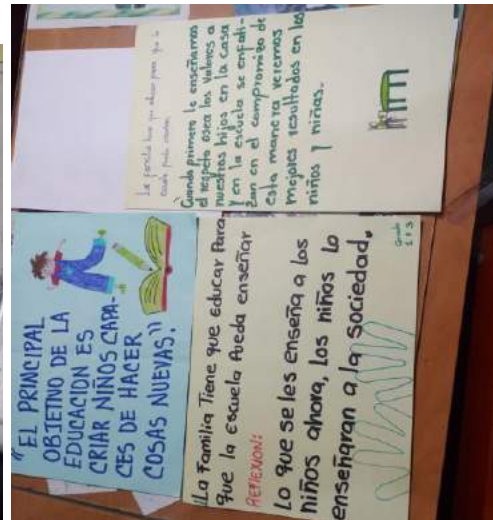 "EL PRINCIPAL
OBJETIVO DE LA
EDUCACION ES
CRIAR NIÑOS CAPA-
CES DE HACER
COSAS NUEVAS."
La Familia Tiene que educar Para
que la escuela Pueda enseñar
REFLEXION:
Lo que se les enseña a los
niños ahora, los niños lo
enseñaran a la sociedad.
Grado
La familia tiene que educar para que la
escuela pueda enseñar.
Cuando primero le enseñamos
el respeto osea los valores a
nuestros hijos en la casa
y en la escuela se enfati-
zan en el compromizo de
esta manera veremos
mejores resultados en los
niños y niñas.